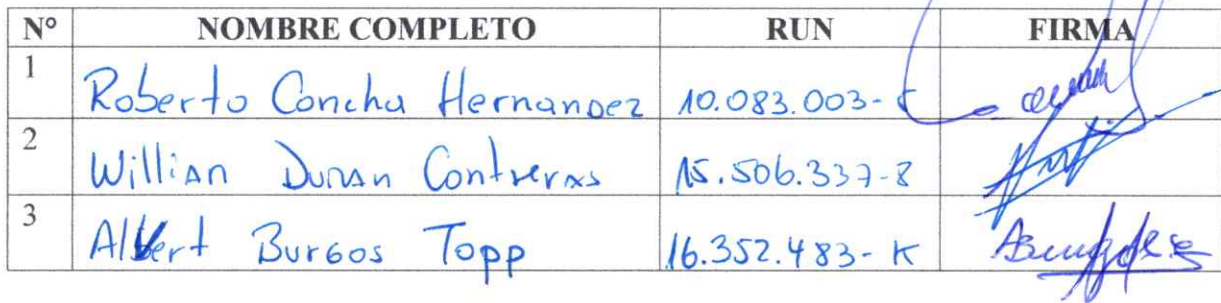 N° NOMBRE COMPLETO RUN FIRMA
1 Roberto Concha Hernandez 10.083.003-
2 Willian Duran Contreras 15.506.337-8
3 Albert Burgos Topp 16.352.483-K